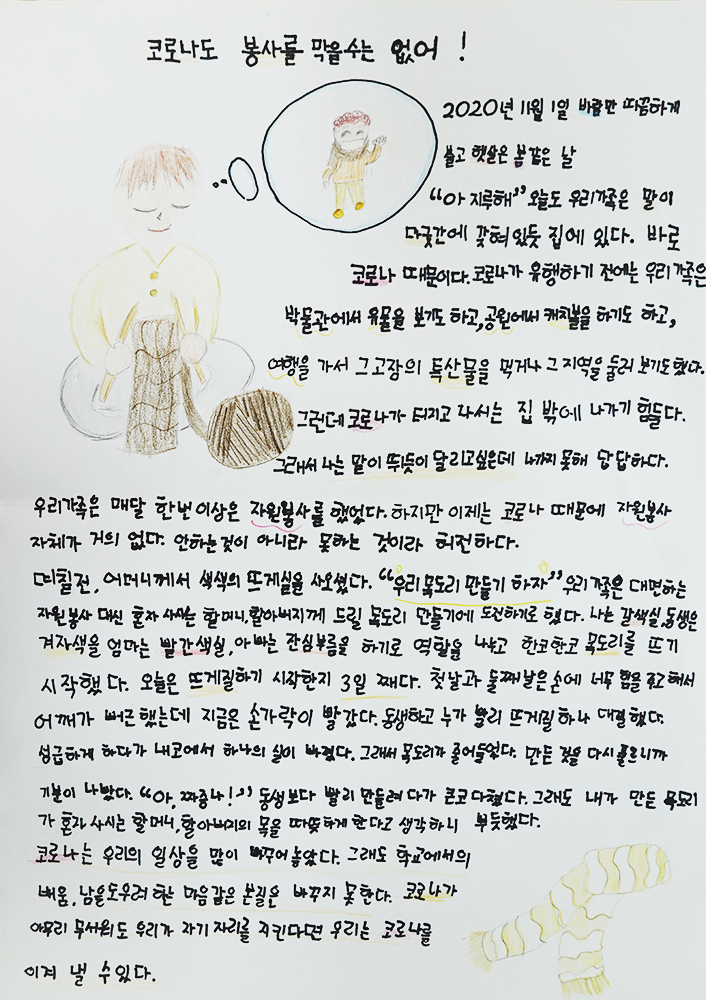 코로나도 봉사를 막을수는 없어!
2020년 11월 1일 바람만 따끔하게
불고 햇살은 봄같은 날
“아 지루해” 오늘도 우리가족은 말이
마굿간에 갖혀있듯 집에 있다. 바로
코로나 때문이다. 코로나가 유행하기 전에는 우리가족은
박물관에서 유물을 보기도 하고, 공원에서 캐치볼을 하기도 하고,
여행을 가서 그 고장의 특산물을 먹거나 그 지역을 둘러 보기도 했다.
그런데 코로나가 터지고 나서는 집 밖에 나가기 힘들다.
그래서 나는 말이 뛰듯이 달리고싶은데 나가지 못해 답답하다.
우리가족은 매달 한번 이상은 자원봉사를 했었다. 하지만 이제는 코로나 때문에 자원봉사
자체가 거의 없다. 안하는것이 아니라 못하는 것이라 허전하다.
며칠전, 어머니께서 색색의 뜨게실을 사오셨다. “우리 목도리 만들기 하자” 우리가족은 대면하는
자원봉사 대신 혼자 사시는 할머니, 할아버지께 드릴 목도리 만들기에 도전하기로 했다. 나는 갈색실, 동생은
겨자색을 엄마는 빨간색실, 아빠는 잔심부름을 하기로 역할을 나눴고 한코한코 목도리를 뜨기
시작했다. 오늘은 뜨게질하기 시작한지 3일 째다. 첫날과 둘째날은 손에 너무 힘을 주고 해서
어깨가 뻐근했는데 지금은 손가락이 빨갔다. 동생하고 누가 빨리 뜨게질 하나 대결했다.
성급하게 하다가 내코에서 하나의 실이 빠졌다. 그래서 목도리가 줄어들었다. 만든 것을 다시 풀으니까
기분이 나빴다. “아, 짜증나!” 동생보다 빨리 만들려 다가 큰코 다쳤다. 그래도 내가 만든 목도리
가 혼자 사시는 할머니, 할아버지의 목을 따뜻하게 한다고 생각하니 뿌듯했다.
코로나는 우리의 일상을 많이 바꾸어 놓았다. 그래도 학교에서의
배움, 남을도우려 하는 마음같은 본질은 바꾸지 못한다. 코로나가
아무리 무서워도 우리가 자기 자리를 지킨다면 우리는 코로나를
이겨 낼 수있다.